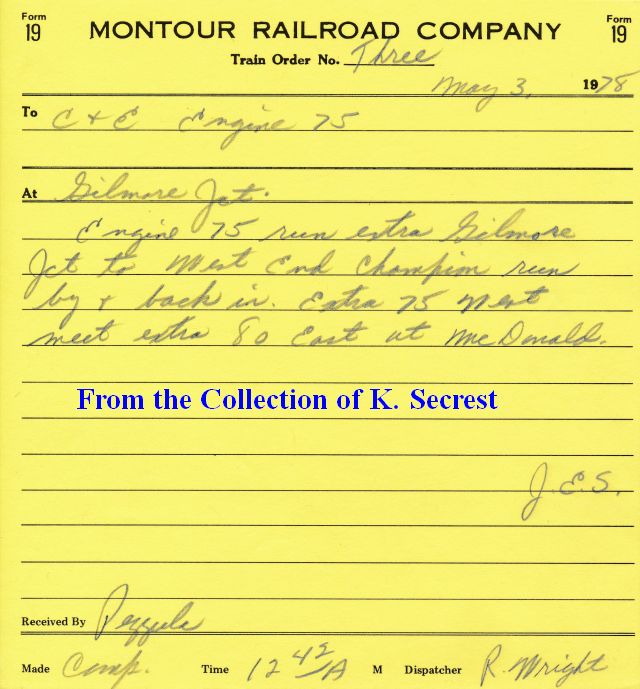 Form 19 MONTOUR RAILROAD COMPANY Form 19
Train Order No. Three
May 3, 1978
To C + E Engine 75
At Gilmore Jct.
Engine 75 run extra Gilmore
Jct to West End Champion run
by + back in. Extra 75 West
meet extra 80 East at McDonald.
From the Collection of K. Secrest
J.E.S.
Received By Pezzula
Made Comp. Time 12 42/A M Dispatcher R. Wright